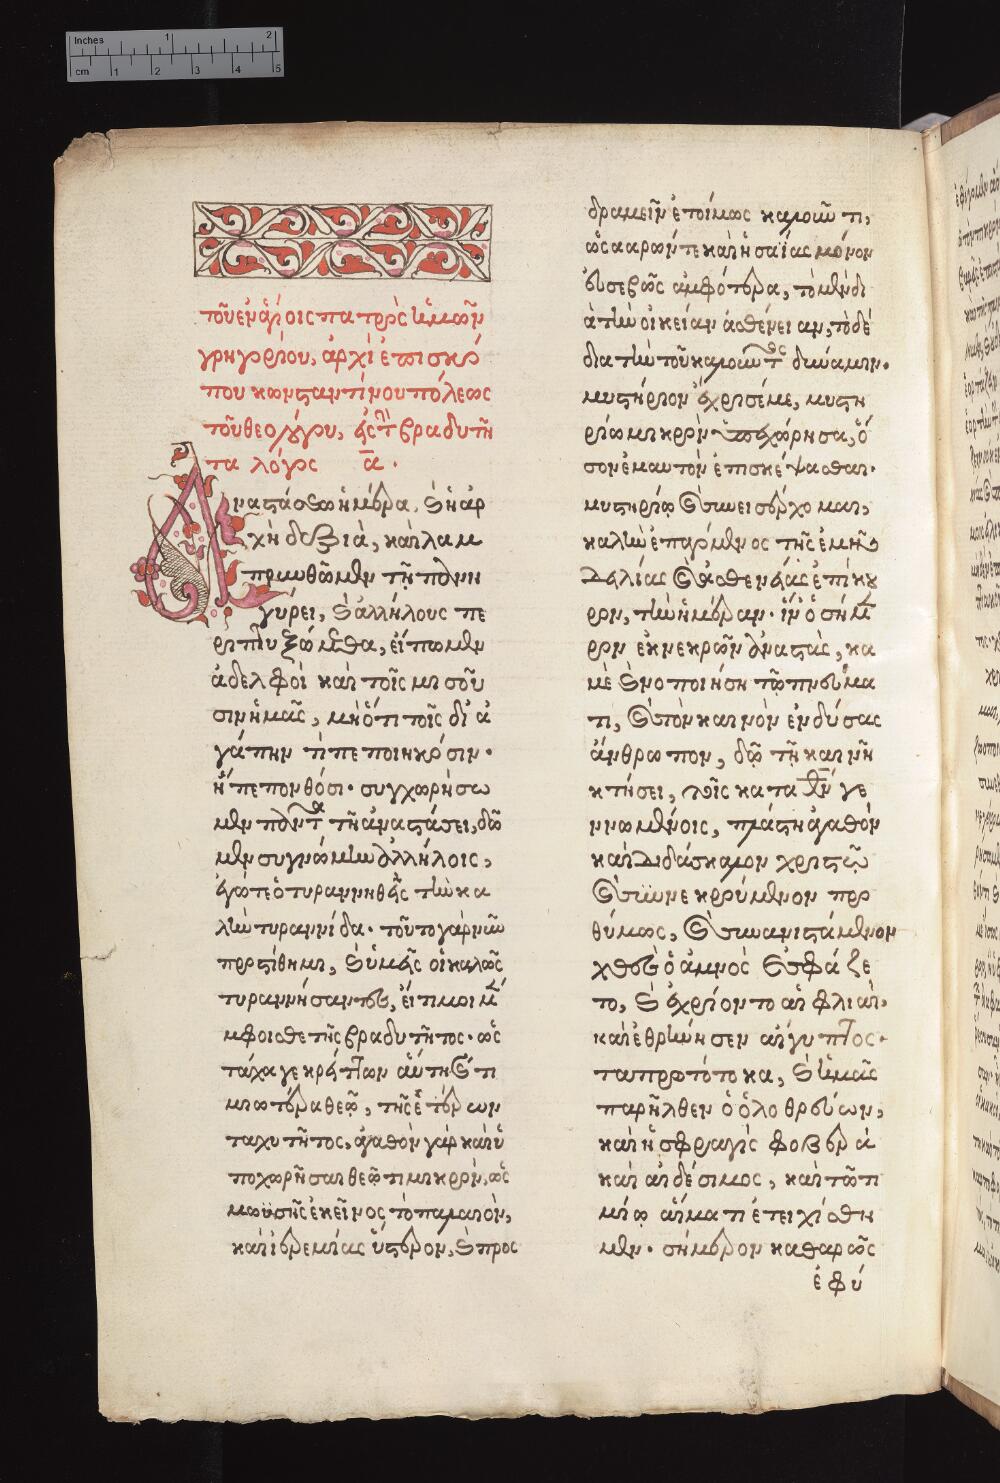 Inches 1 2
cm 1 2 3 4 5
τοῦ ἐν ἁγίοις πατρὸς ἡμῶν
γρηγορίου, ἀρχιεπισκό
που κωνσταντίνου πόλεως
τοῦ θεολόγου, εἰς τὴν βραδυτῆ
τα λόγος α.
Ἀναστάσεως ἡμέρα, καὶ ἡ ἀρ
χὴ δεξιὰ, καὶ λαμ
πρυνθῶμεν τῇ πανη
γύρει, καὶ ἀλλήλους πε
ριπτυξώμεθα, εἴπωμεν
ἀδελφοὶ καὶ τοῖς μισοῦ
σιν ἡμᾶς, μὴ ὅτι τοῖς δι' ἀ
γάπην τὶ πεποιηκόσιν.
ἢ πεπονθόσι. συγχωρήσω
μεν πάντα τῇ ἀναστάσει, δῶ
μεν συγνώμην ἀλλήλοις,
ἐγώ τε ὁ τυραννηθεὶς τὴν κα
λὴν τυραννίδα. τοῦτο γὰρ νῦν
προστίθημι, καὶ ὑμεῖς οἱ καλῶς
τυραννήσαντες, εἴ τι μοι μέ
μφοισθε τῆς βραδυτῆτος. ὡς
τάχα γε κρείττων αὕτη καὶ τι
μιωτέρα θεῷ, τῆς ἑτέρων
ταχυτῆτος, ἀγαθὸν γὰρ καὶ ὑ
ποχωρῆσαι θεῷ τι μικρὸν, ὡς
μωϋσῆς ἐκεῖνος τὸ παλαιὸν,
καὶ ἱερεμίας ὕστερον, καὶ προς
δραμεῖν ἑτοίμως καλοῦντι,
ὡς ἀαρών τε καὶ ἡσαΐας μόνον
εὐσεβῶς ἀμφότερα, τὸ μὲν δι
ὰ τὴν οἰκείαν ἀσθένειαν, τὸ δὲ
διὰ τὴν τοῦ καλοῦντος δύναμιν.
μυστήριον ἔχρισέ με, μυστη
ρίῳ μικρὸν ὑπεχώρησα, ὅ
σον ἐμαυτὸν ἐπισκέψασθαι.
μυστηρίῳ καὶ συνεισέρχομαι,
καλὴν ἐπαγόμενος τῆς ἐμῆς
δειλίας καὶ ἀσθενείας ἐπίκου
ρον, τὴν ἡμέραν. ἵν' ὁ σήμε
ρον ἐκ νεκρῶν ἀναστὰς, κα
μὲ καινοποιήσῃ τῷ πνεύμα
τι, καὶ τὸν καινὸν ἐνδύσας
ἄνθρωπον, δῷ τῇ καινῇ
κτίσει, τοῖς κατὰ θν γε
ννωμένοις, πλάστην ἀγαθὸν
καὶ διδάσκαλον χριστῷ
καὶ συννεκρούμενον προ
θύμως, καὶ συνανιστάμενον
χθὲς ὁ ἀμνὸς ἐσφάζε
το, καὶ ἐχρίοντο αἱ φλιαὶ,
καὶ ἐθρήνησεν αἴγυπτος.
τὰ πρωτότοκα, καὶ ἡμᾶς
παρῆλθεν ὁ ὀλοθρεύων,
καὶ ἡ σφραγὶς φοβερὰ
καὶ αἰδέσιμος, καὶ τῷ τι
μίῳ αἵματι ἐτειχίσθη
μεν. σήμερον καθαρῶς
ἐφύ